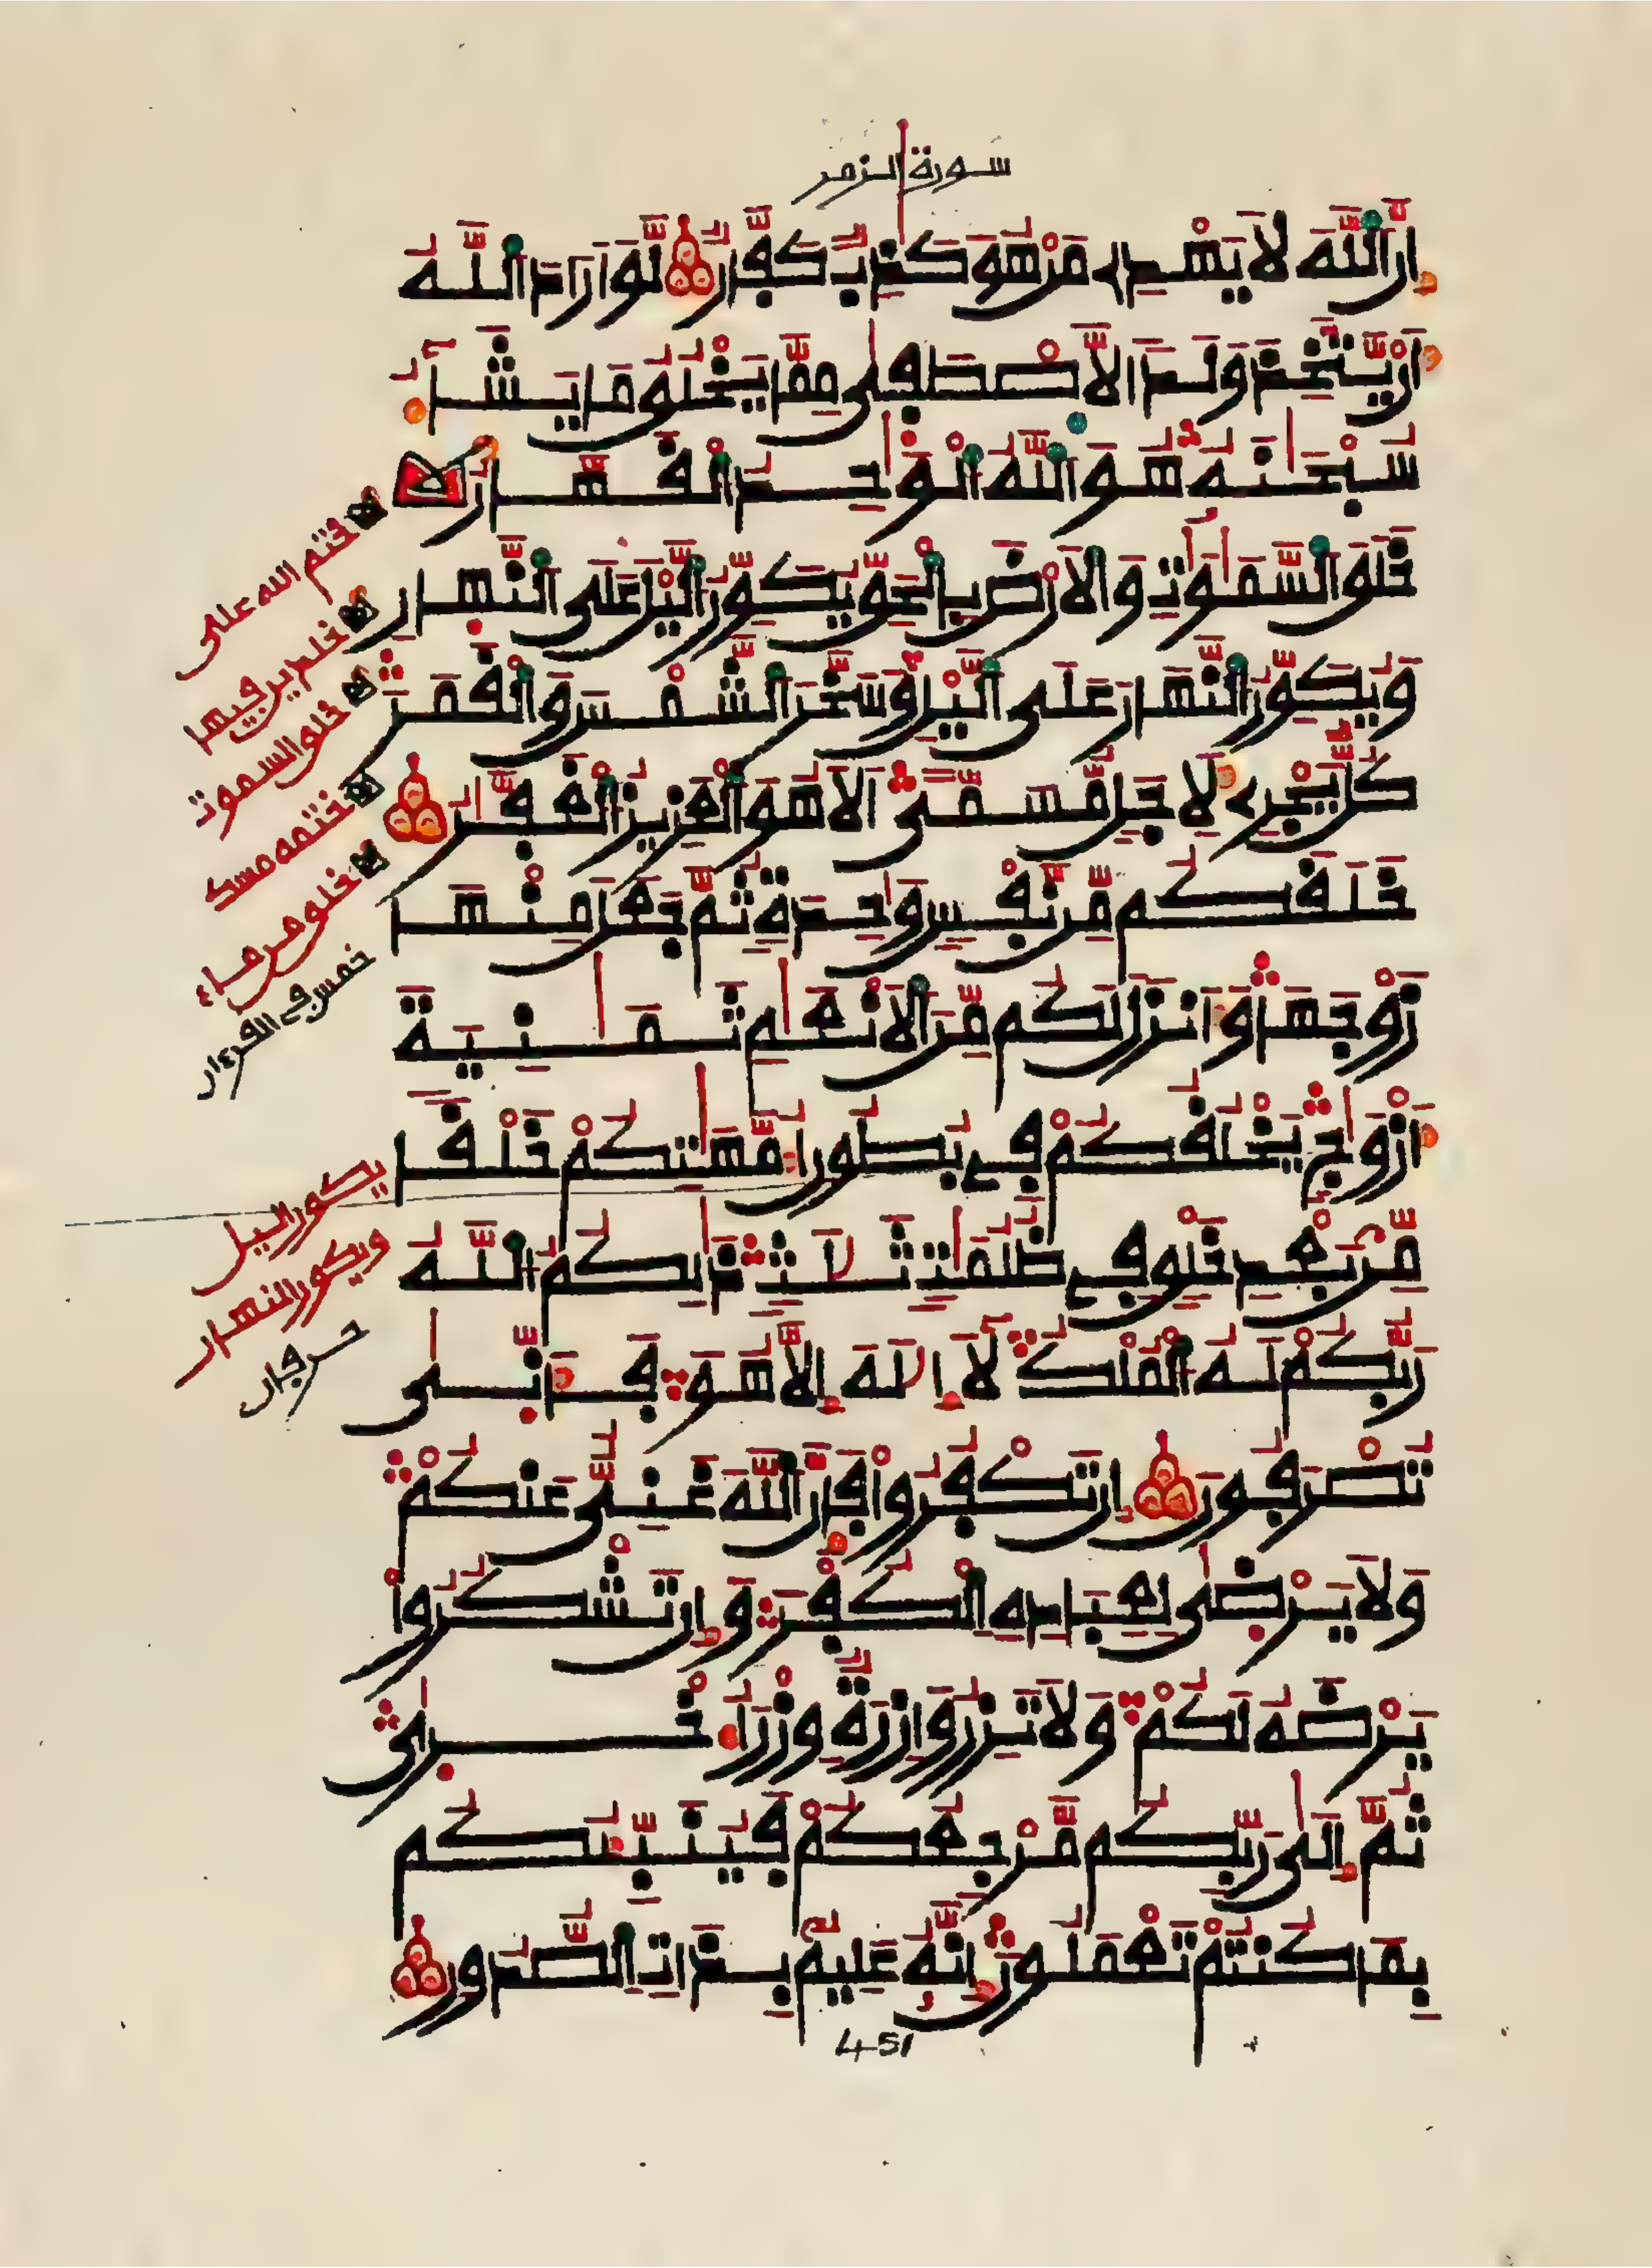 سورة الزمر
اِنَّ اَللَّهَ لَا يَهْدِے مَنْ هُوَ كَٰذِبٌ كَفَّارٌ لَّوَ اَرَادَ اَللَّهُ
أَنْ يَّتَّخِذَ وَلَدًا لَّاصْطَفٜىٰ مِمَّا يَخْلُقُ مَا يَشَآءُ
سُبْحَٰنَهُۥ هُوَ اَللَّهُ اُلْوَٰحِدُ اُلْقَهَّارُ
خَلَقَ اَلسَّمَٰوَٰتِ وَالَارْضَ بِالْحَقِّ يُكَوِّرُ اُليْلَ عَلَى اَلنَّهٜارِ
وَيُكَوِّرُ اُلنَّهَارَ عَلَى اَليْلِ وَسَخَّرَ اَلشَّمْسَ وَالْقَمَرَ
كُلٌّ يَجْرِے لِأَجَلٍ مُّسَمًّى اَلَا هُوَ اَلْعَزِيزُ اُلْغَفَّٰرُ
خَلَقَكُم مِّن نَّفْسٍ وَٰحِدَةٍ ثُمَّ جَعَلَ مِنْهَا
زَوْجَهَا وَأَنزَلَ لَكُم مِّنَ اَلَانْعَٰمِ ثَمَٰنِيَةَ
أَزْوَٰجٍ يَخْلُقُكُمْ فِے بُطُونِ أُمَّهَٰتِكُمْ خَلْقًا
مِّنۢ بَعْدِ خَلْقٍ فِے ظُلُمَٰتٍ ثَلَٰثٍ ذَٰلِكُمُ اُللَّهُ
رَبُّكُمْ لَهُ اُلْمُلْكُ لَآ إِلَٰهَ إِلَّا هُوَ فَأَنّٜىٰ
تُصْرَفُونَ إِن تَكْفُرُواْ فَإِنَّ اَللَّهَ غَنِيٌّ عَنكُمْ
وَلَا يَرْضٜىٰ لِعِبَادِهِ اِلْكُفْرَ وَإِن تَشْكُرُواْ
يَرْضَهُ لَكُمْ وَلَا تَزِرُ وَازِرَةٌ وِزْرَ أُخْرٜىٰ
ثُمَّ إِلَىٰ رَبِّكُم مَّرْجِعُكُمْ فَيُنَبِّئُكُم
بِمَا كُنتُمْ تَعْمَلُونَ إِنَّهُۥ عَلِيمٌۢ بِذَاتِ اِلصُّدُورِ
ختم الله على
خلدين فيها
خلق السموت
ختمه مسك
خلق من ماء
خمس في القرءان
يكور اليل
ويكور النهار
حرفان
451